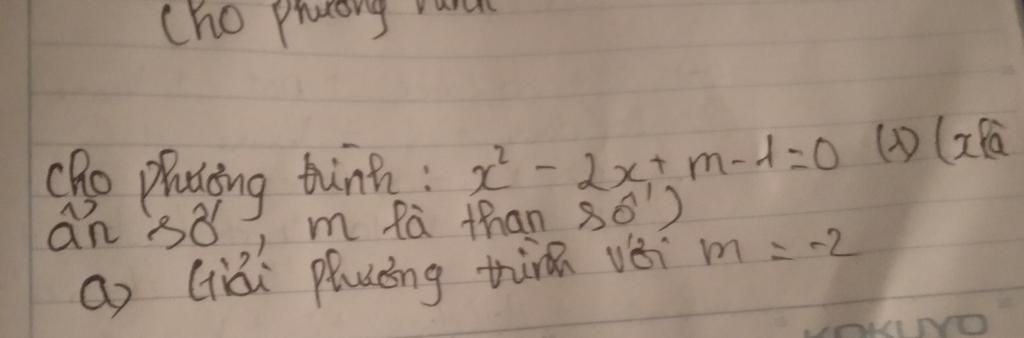 Cho phương trình
Cho phương trình : x² - 2x + m - 1 = 0 (1) (x là
ẩn số, m là than số)
a) Giải phương trình với m = -2
KOKUYO